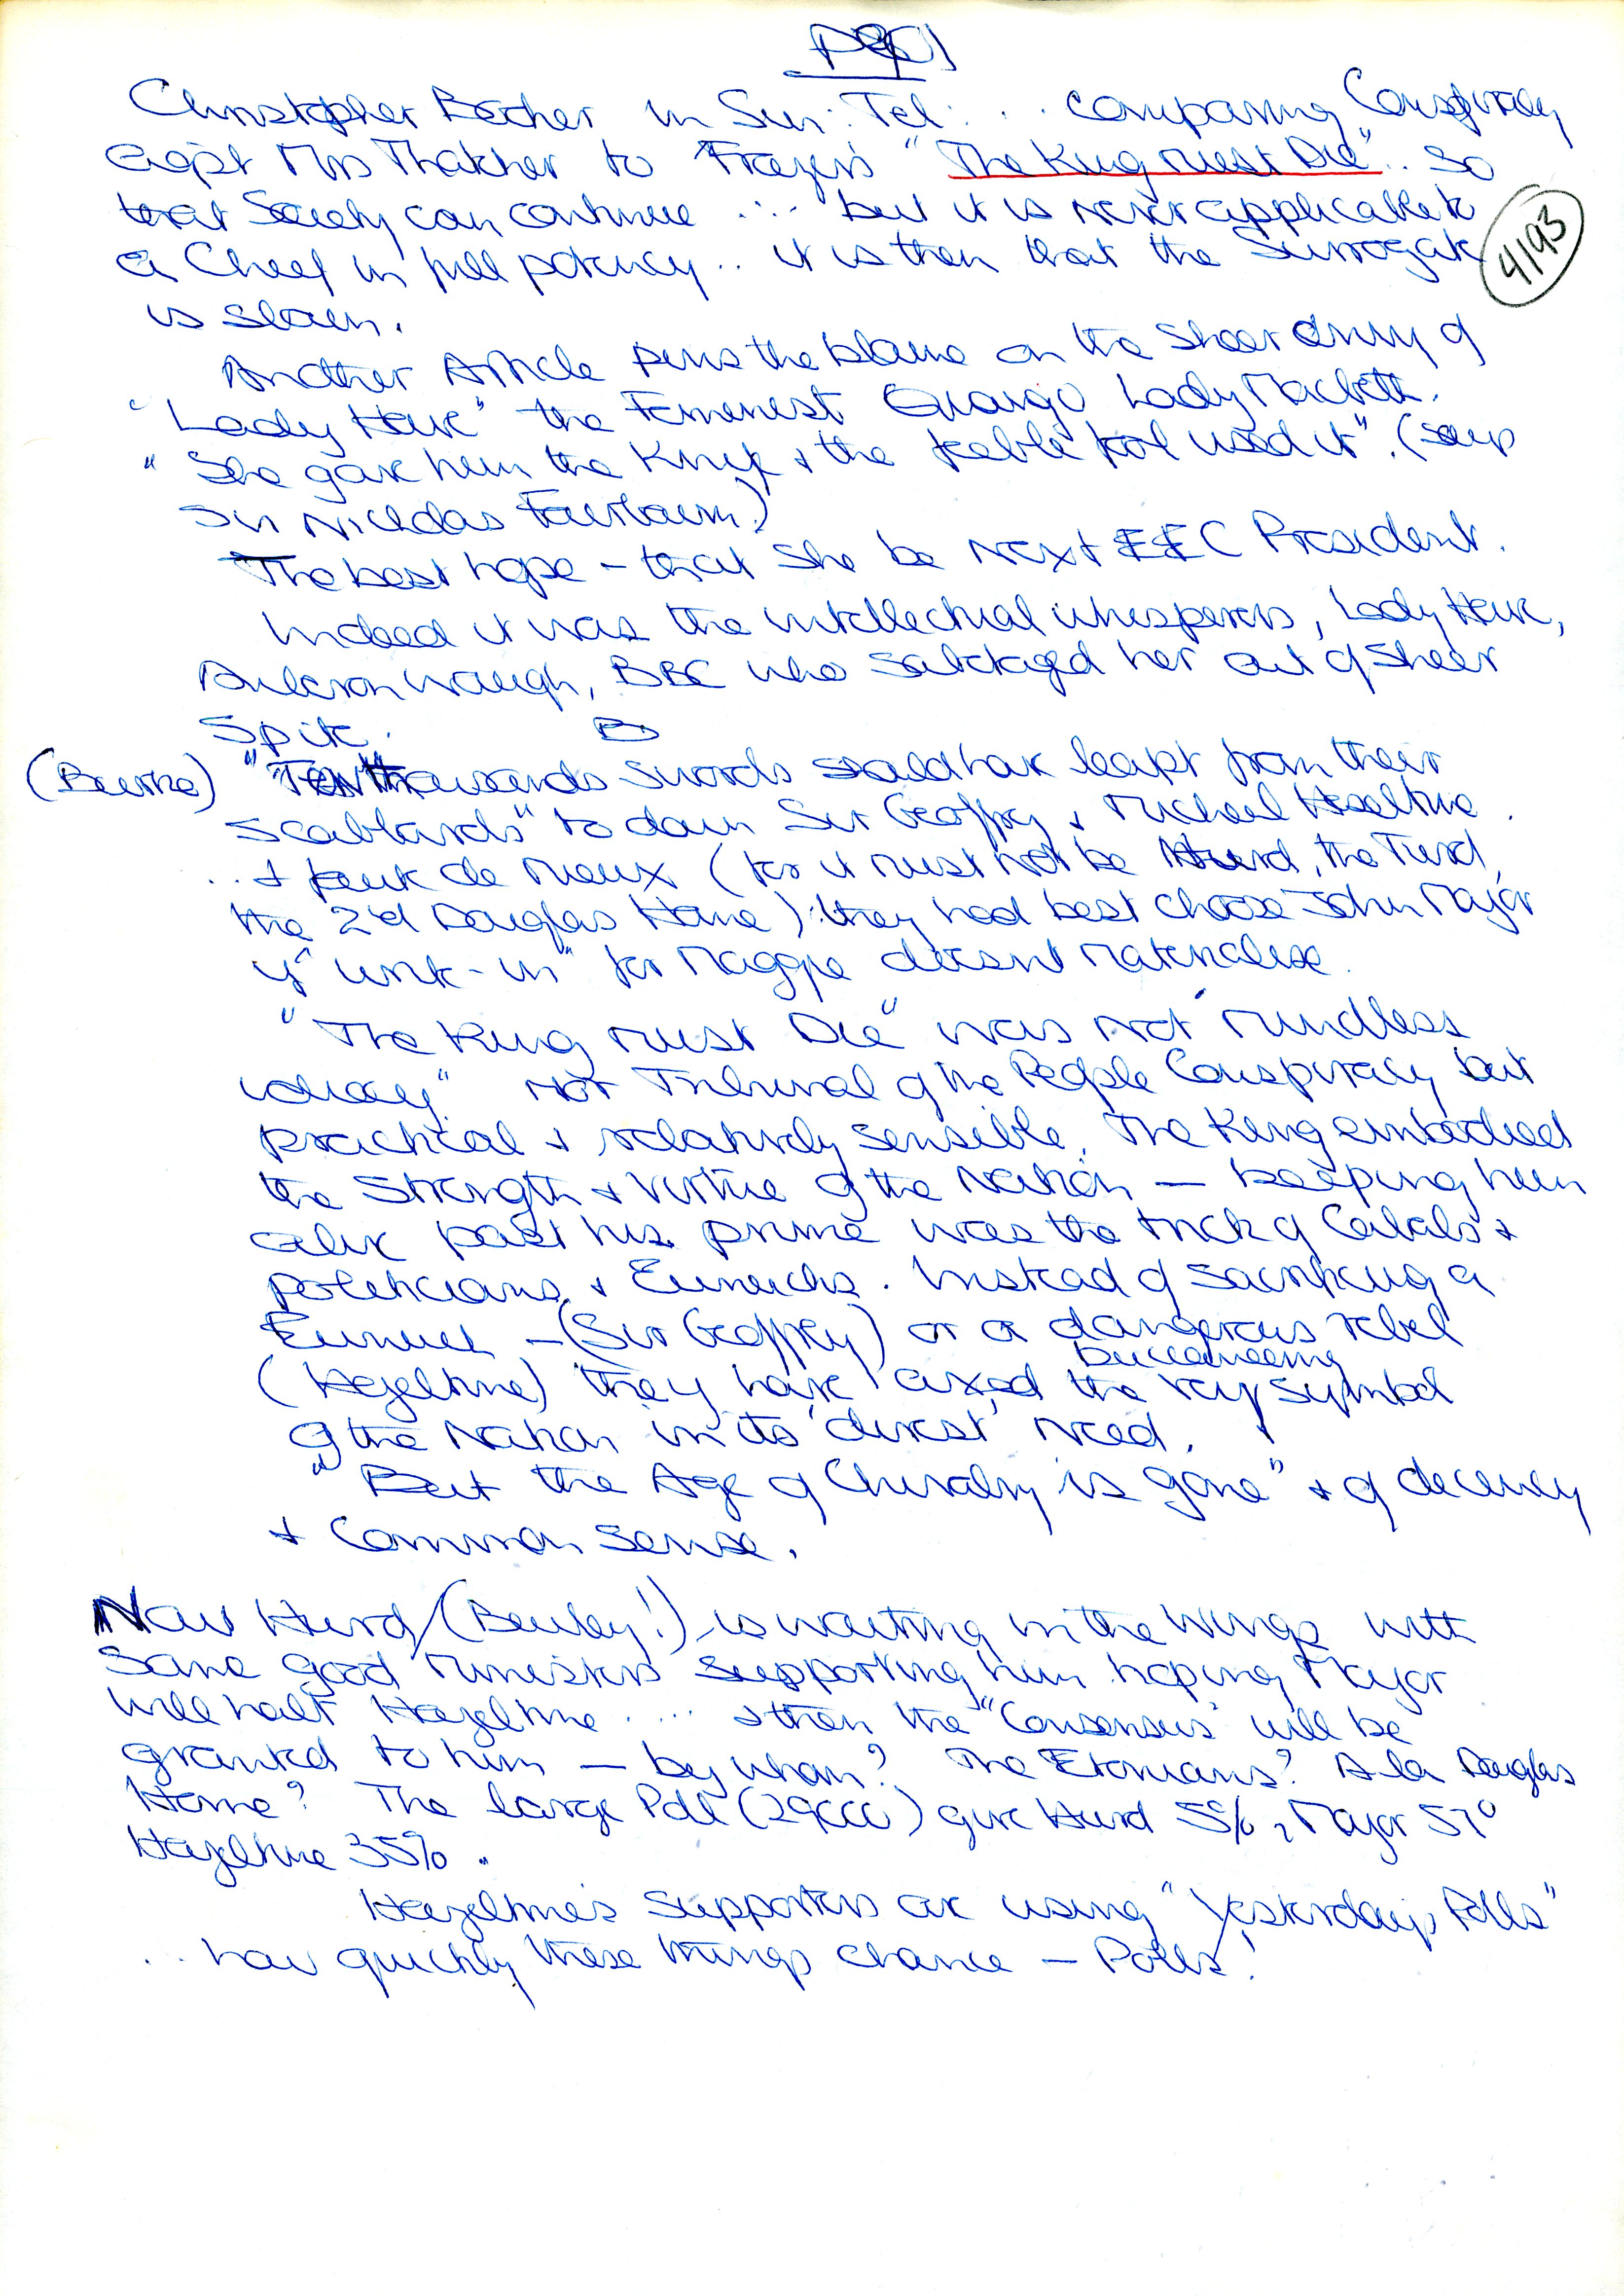 Christopher Booker in Sun: Tel: .. comparing Conspiracy
agst Mrs Thatcher to Frazer's "The King must Die".. so
that Society can continue ... but it is never applicable to
a Chief in full potency.. it is then that the Surrogate
4193
is slain.
Another Article pins the blame on the sheer envy of
"Lady Howe" the Feminist Quango Lady Macbeth.
"She gave him the Knife & the feeble fool used it". (says
Sir Nicholas Fairbairn)
The best hope - that she be next EEC President.
Indeed it was the intellectual whisperers, Lady Howe,
Auberon Waugh, BBC who sabotaged her out of sheer
Spite.
(Burke) "Ten thousands swords should have leapt from their
scabbards" to down Sir Geoffrey & Michael Heseltine.
.. & faut de mieux (for it must not be Hurd, the Turd,
the 2'd Douglas Home) they had best choose John Major
if "write-in" for Maggie doesnt materialise.
"The King must Die" was not "mindless
idiocy". Not Tribunal of the People Conspiracy but
practical & relatively sensible. The King embodied
the Strength & Virtue of the Nation — keeping him
alive past his prime was the trick of Cabals &
politicians & Eunuchs. Instead of sacrificing a
Eunuch - (Sir Geoffrey) or a dangerous rebel
buccaneering
(Hezeltine) they have axed the very symbol
of the Nation in its direst need.
"But the Age of Chivalry is gone" & of decency
& Common Sense.
Now Hurd (Beuley!) is waiting in the Wings with
some good ministers supporting him hoping Major
will halt Hezeltine .... & then the "Consensus" will be
granted to him — by whom? The Etonians? A la Douglas
Home? The large Poll (29000) give Hurd 5%, Major 57%
Hezeltine 35%.
Hezeltine's supporters are using "Yesterday's Polls"
.. how quickly these things chance — Polls!